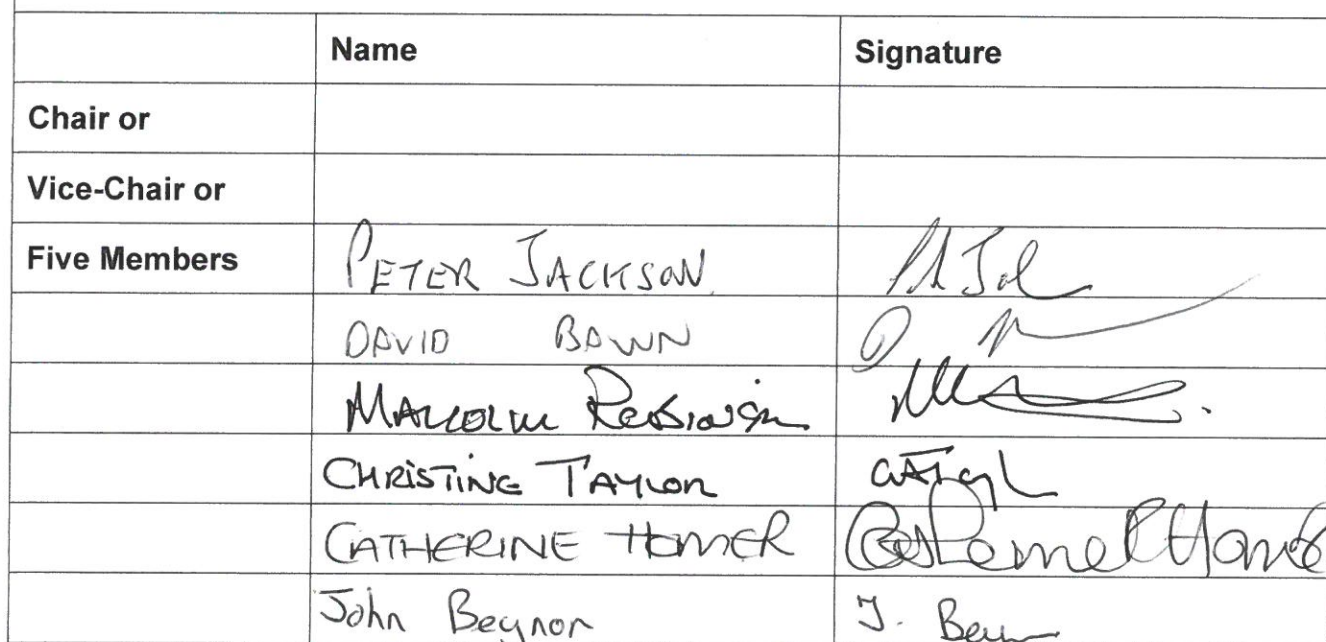 Name Signature
Chair or
Vice-Chair or
Five Members PETER JACKSON
DAVID BAWN
MALCOLM ROBINSON
CHRISTINE TAYLOR
CATHERINE HOMER
John Beynon J.